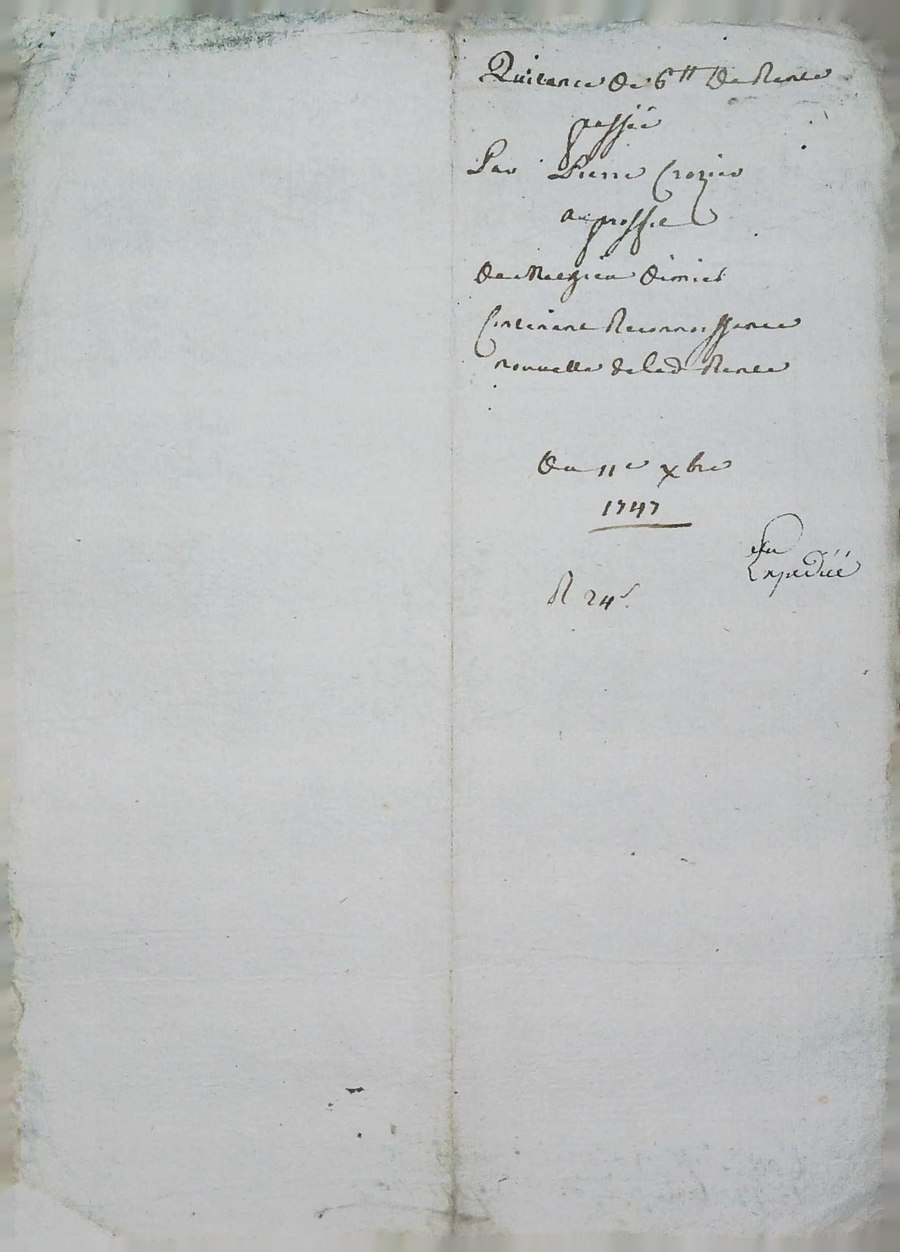 Quitance de 6 tt de Rente
passée
Par Pierre Crozier
au proffit
de
Contenant Reconnoissance
nouvelle de lad Rente
du 11e xbre
1747
R 24 s
Expedié